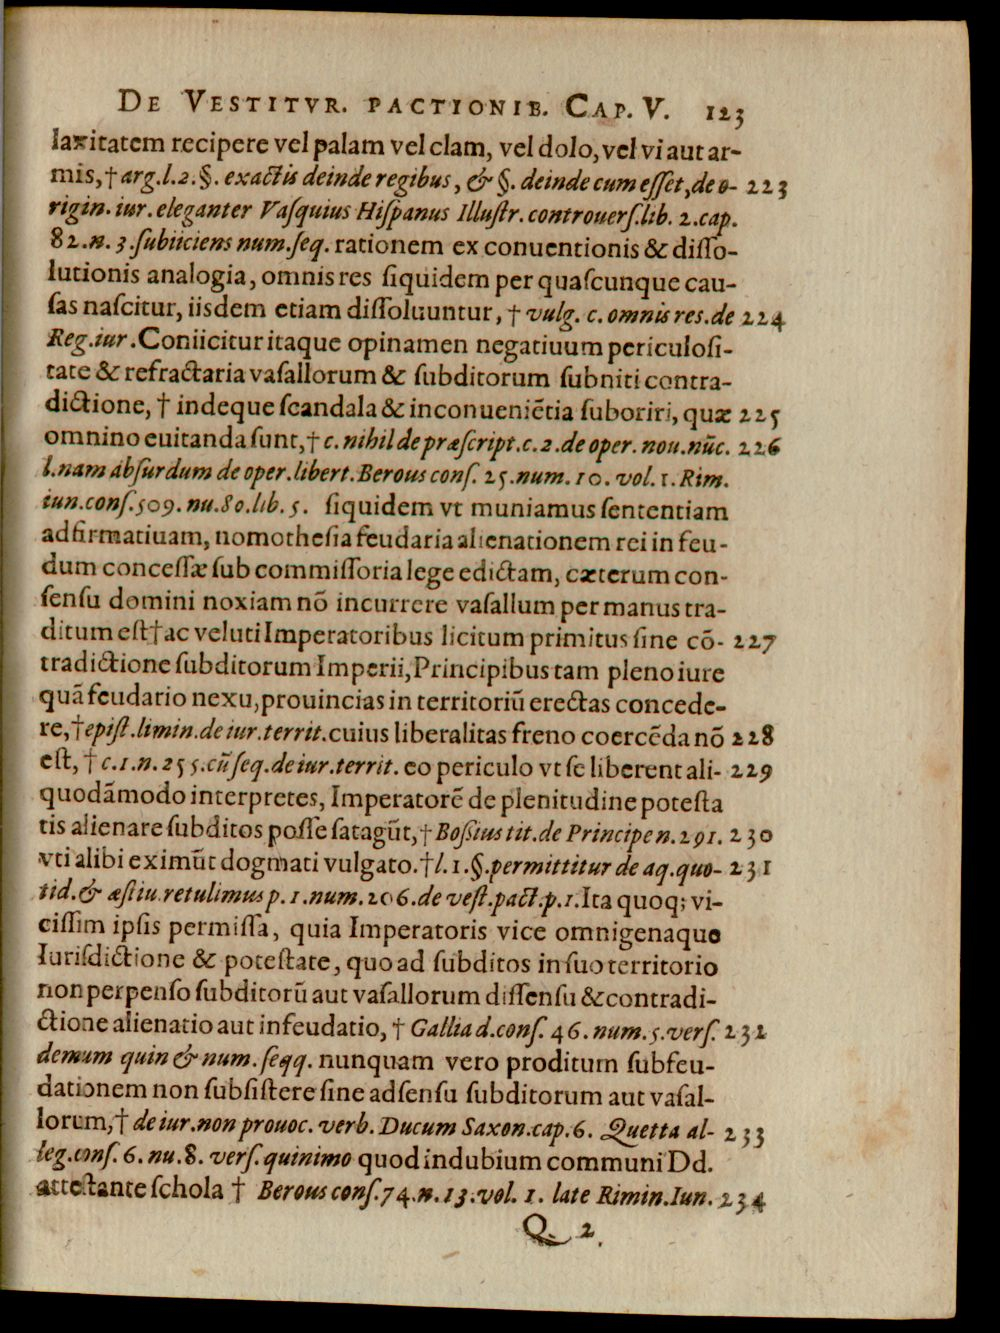 DE VESTITVR. PACTIONIB. CAP. V. 123
laxitatem recipere vel palam vel clam, vel dolo, vel vi aut ar-
mis, † arg. l. 2. §. exactis deinde regibus, & §. deinde cum eſſet, de o- 223
rigin. iur. eleganter Vaſquius Hiſpanus Illuſtr. controuerſ. lib. 2. cap.
82. n. 3. ſubiiciens num. ſeq. rationem ex conuentionis & diſſo-
lutionis analogia, omnis res ſiquidem per quaſcunque cau-
ſas naſcitur, iisdem etiam diſſoluuntur, † vulg. c. omnis res. de 224
Reg. iur. Coniicitur itaque opinamen negatiuum periculoſi-
tate & refractaria vaſallorum & ſubditorum ſubniti contra-
dictione, † indeque ſcandala & inconueniẽtia ſuboriri, quæ 225
omnino euitanda ſunt, † c. nihil de præſcript. c. 2. de oper. nou. nũc. 226
l. nam abſurdum de oper. libert. Berous conſ. 25. num. 10. vol. 1. Rim.
iun. conſ. 509. nu. 80. lib. 5. ſiquidem vt muniamus ſententiam
adfirmatiuam, nomotheſia feudaria alienationem rei in feu-
dum conceſſæ ſub commiſſoria lege edictam, cæterum con-
ſenſu domini noxiam nõ incurrere vaſallum per manus tra-
ditum eſt † ac veluti Imperatoribus licitum primitus ſine cõ- 227
tradictione ſubditorum Imperii, Principibus tam pleno iure
quã feudario nexu, prouincias in territoriũ erectas concede-
re, † epiſt. limin. de iur. territ. cuius liberalitas freno coercẽda nõ 228
eſt, † c. 1. n. 255. cũ ſeq. de iur. territ. eo periculo vt ſe liberent ali- 229
quodãmodo interpretes, Imperatorẽ de plenitudine poteſta
tis alienare ſubditos poſſe ſatagũt, † Boſſius tit. de Principe n. 291. 230
vti alibi eximũt dogmati vulgato. † l. 1. §. permittitur de aq. quo- 231
tid. & æſtiu. retulimus p. 1. num. 206. de veſt. pact. p. 1. Ita quoq; vi-
ciſſim ipſis permiſſa, quia Imperatoris vice omnigenaque
Iurisdictione & poteſtate, quo ad ſubditos in ſuo territorio
non perpenſo ſubditorũ aut vaſallorum diſſenſu & contradi-
ctione alienatio aut infeudatio, † Gallia d. conſ. 46. num. 5. verſ. 232
demum quin & num. ſeqq. nunquam vero proditum ſubfeu-
dationem non ſubſiſtere ſine adſenſu ſubditorum aut vaſal-
lorum, † de iur. non prouoc. verb. Ducum Saxon. cap. 6. Quetta al- 233
leg. conſ. 6. nu. 8. verſ. quinimo quod indubium communi Dd.
atteſtante ſchola † Berous conſ. 74. n. 13. vol. 1. late Rimin. Iun. 234
Q 2